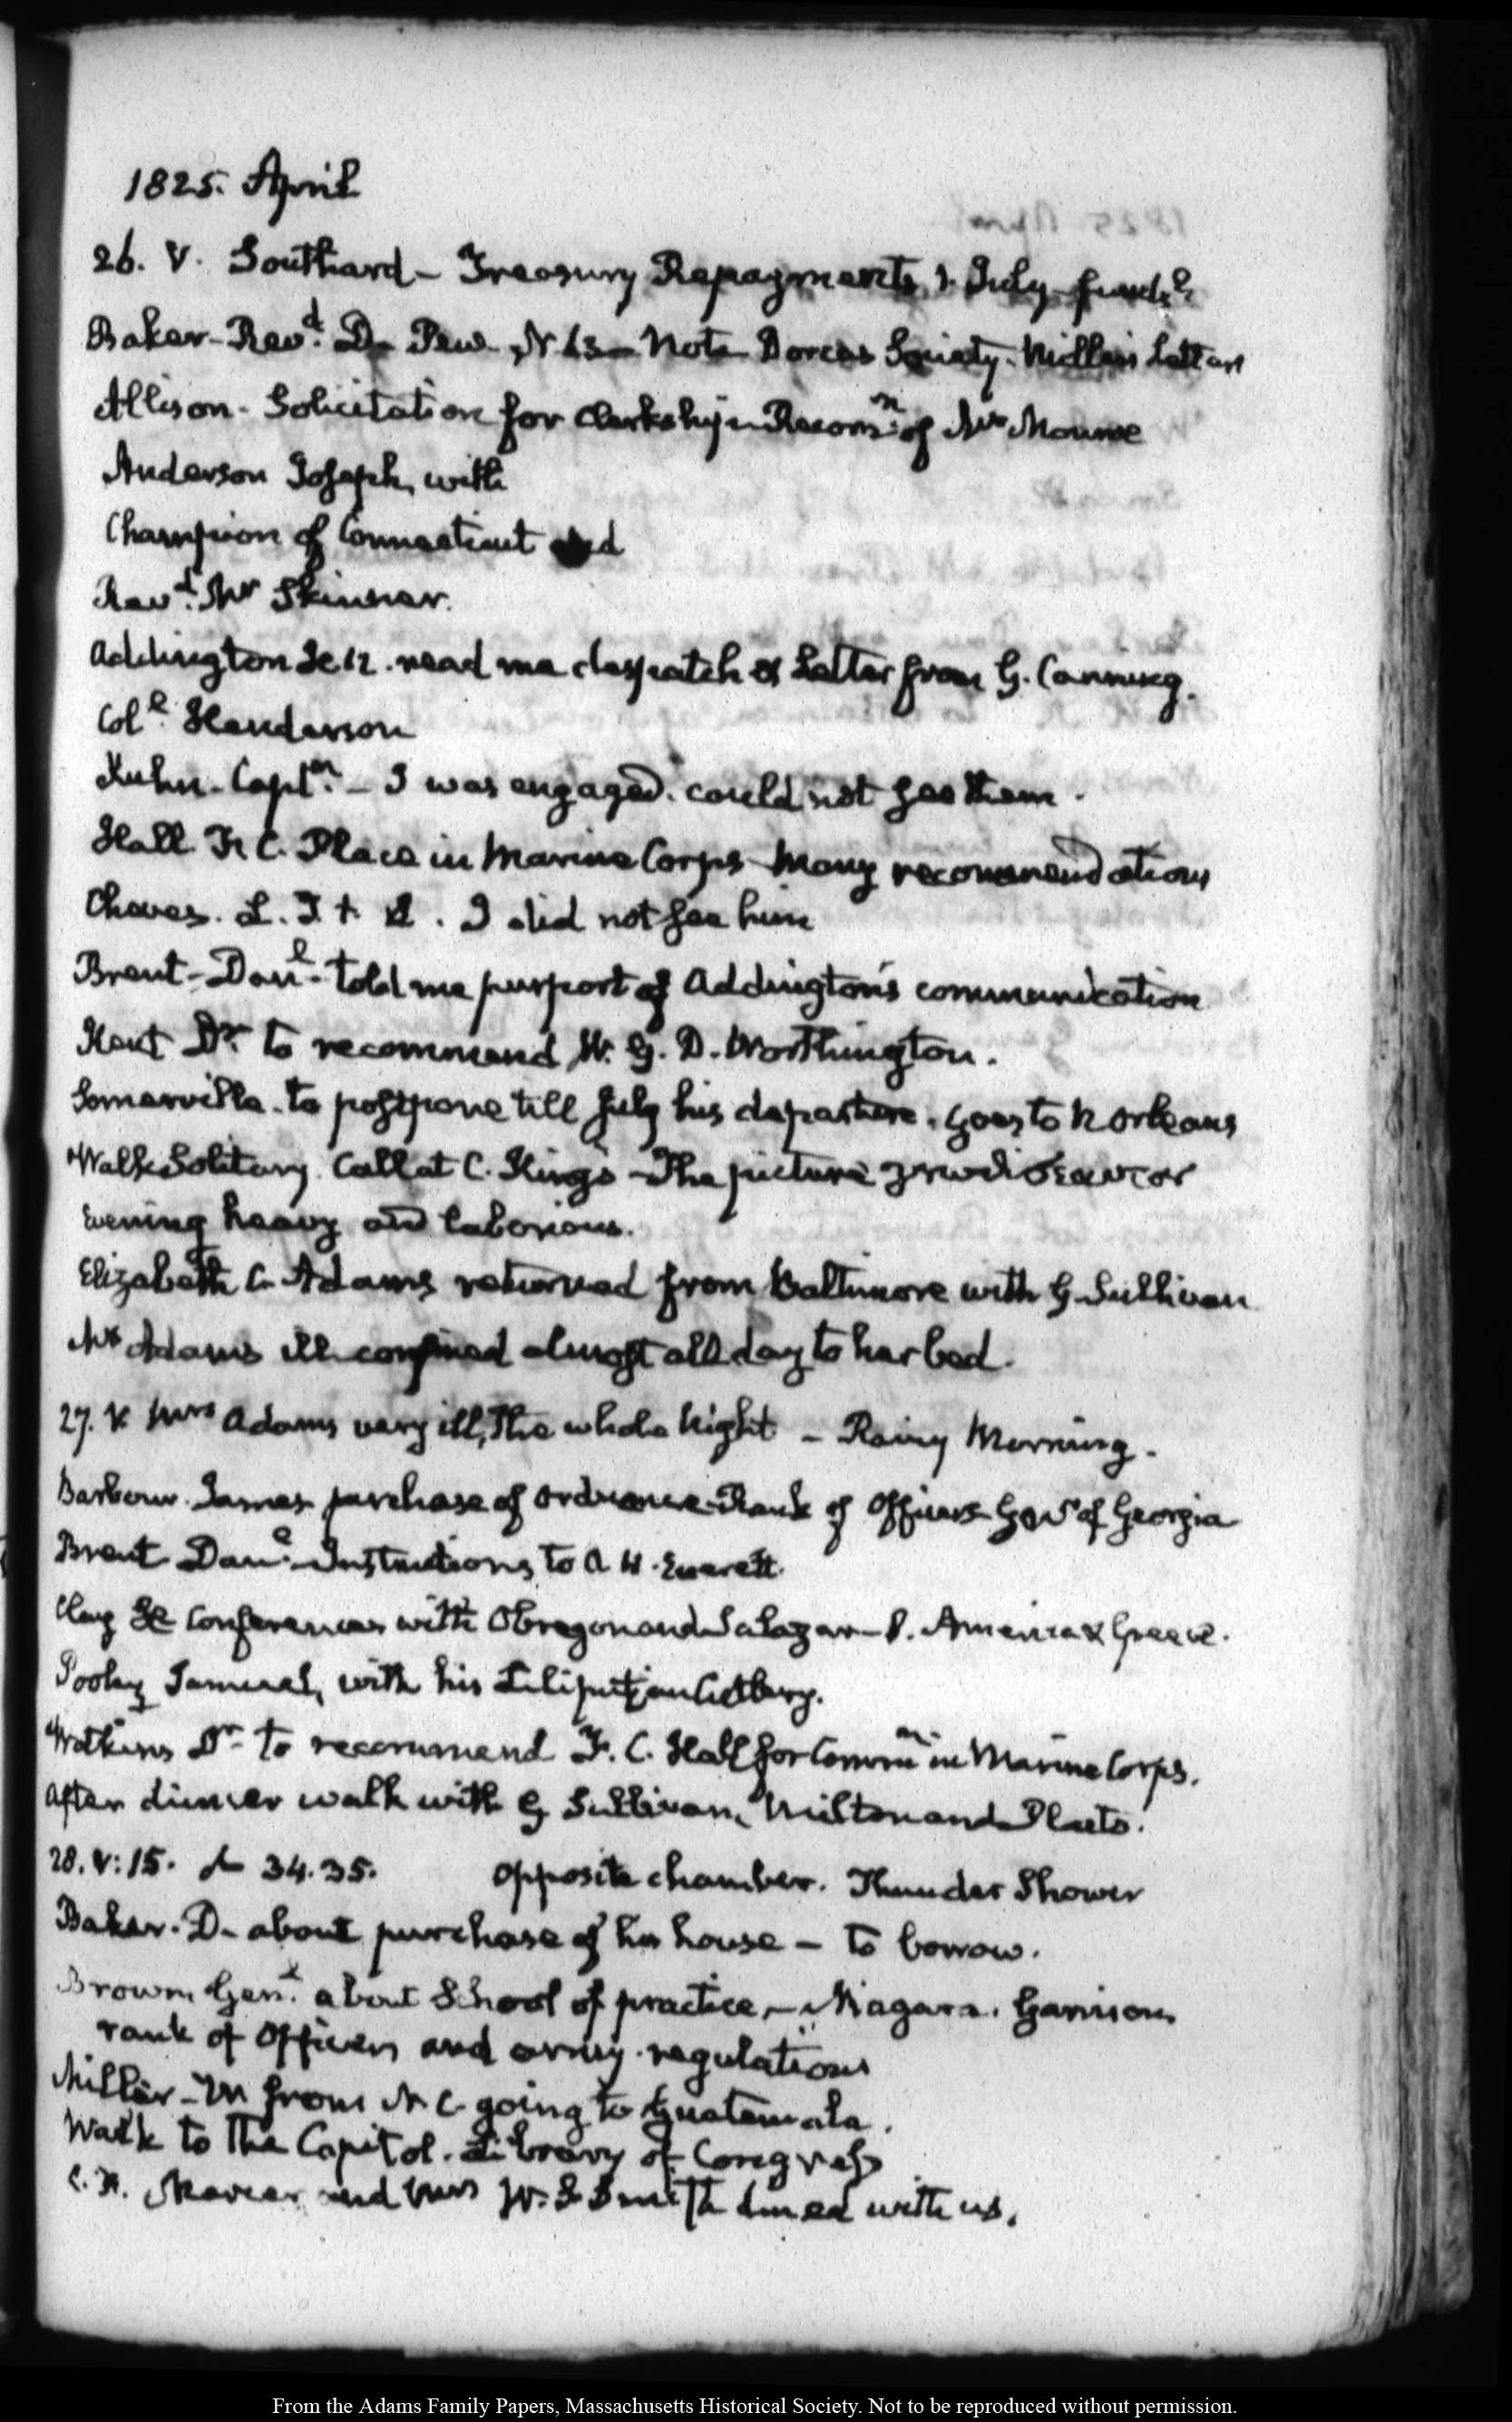 1825. April
26. V. Southard - Treasury Repayments 1. July
Baker - Revd. D - Pew N 13 - Note Dorcas Society. Letter
Allison - Solicitation for Clerkship - Recomn. of Mr Monroe
Anderson Joseph, with
Champion of Connecticut and
Revd. Mr Skinner.
Addington 12. read me despatch & Letter from G. Canning.
Coll. Henderson
Kuhn - Captn. - I was engaged. could not see them.
Hall F. C. Place in Marine Corps - Many recommendations
Cheves. L. I did not see him
Brent - Danl. - told me purport of Addington's communication
Kent Dr. to recommend W. G. D. Worthington.
Somerville. to postpone till July his departure. goes to N Orleans
Walk Solitary. Call at C. King's - The picture
Evening heavy and laborious.
Elizabeth C. Adams returned from Baltimore with G. Sullivan
Mrs Adams ill confined almost all day to her bed.
27. V. Mrs Adams very ill, the whole Night - Rainy Morning.
Barbour. James purchase of Ordnance - Rank of Officers - Govr. of Georgia
Brent Danl. - Instructions to A H. Everett.
Clay Conferences with Obregon and Salazar - S. America & Greece.
Pooley Samuel, with his Liliputian Cutlery.
Watkins Dr. to recommend F. C. Hall for Commn. in Marine Corps.
After dinner walk with G Sullivan, Milton and Plato.
28. V:15. 34.35. Opposite chamber. Thunder Shower
Baker. D - about purchase of his house - to borrow.
Brown Genl. about School of practice - Niagara. Garrison
rank of Officers and army regulations
Miller - from N C going to Guatemala.
Walk to the Capitol. Library of Congress
and Mrs W. S Smith dined with us.
From the Adams Family Papers, Massachusetts Historical Society. Not to be reproduced without permission.